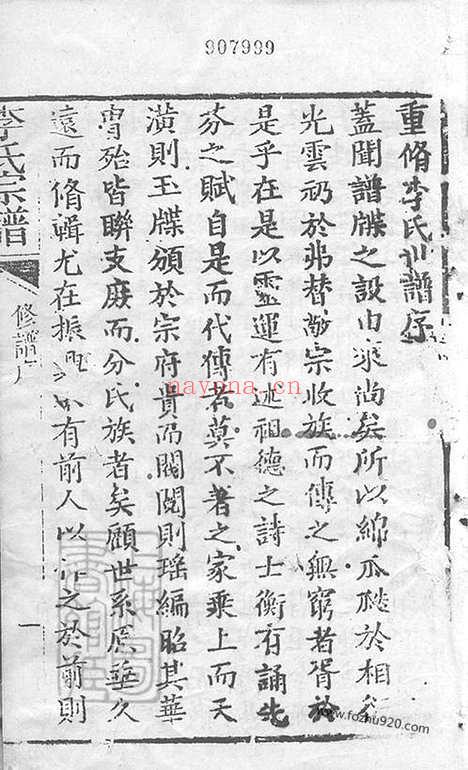 907999
重脩李氏世譜序
蓋聞譜牒之設由來尚矣所以綿瓜瓞於相
光雲礽於弗替敬宗收族而傳之無窮者胥於
是乎在是以靈運有述祖德之詩士衡有誦先
芬之賦自是而代傳者莫不著之家乘上而天
潢則玉牒頒於宗府貴而閥閱則瑤編昭其華
冑殆皆聯支庶而分氏族者矣顧世系蕃華久
遠而脩輯尤在振 有前人以作之於前則
李氏宗譜
修譜序
一
nayona.cn
www.fozhu920.com